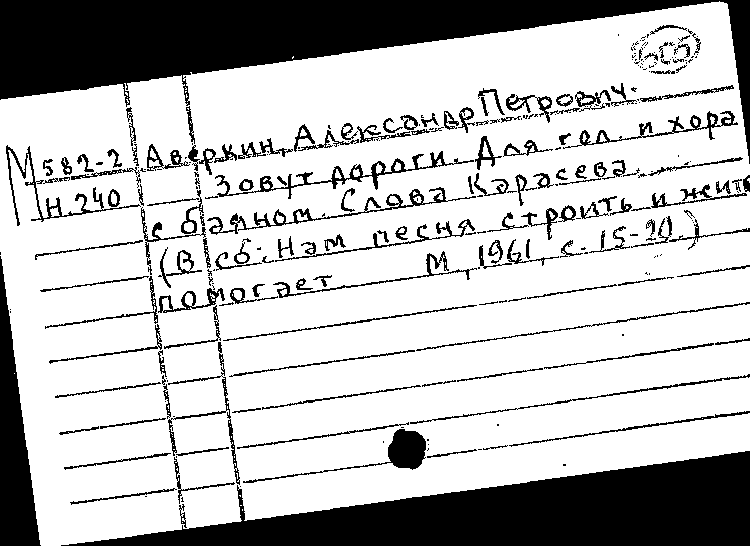 всб
М 582-2 Аверкин, Александр Петрович.
Н.240 Зовут дороги. Для гол. и хора
с баяном. Слова Карасева.
(В сб: Нам песня строить и жить
помогает. М, 1961, с. 15-20.)